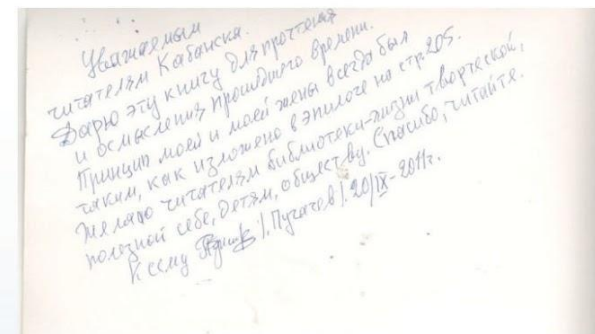 Уважаемым
читателям Кабанска.
Дарю эту книгу для прочтения
и осмысления прошедшего времени.
Принцип моей и моей жены всегда был
таким, как изложено в эпилоге на стр. 205.
Желаю читателям библиотеки - жизни творческой,
полезной себе, детям, обществу. Спасибо, читайте.
К сему /. Пугачев /. 20/IX-2011г.